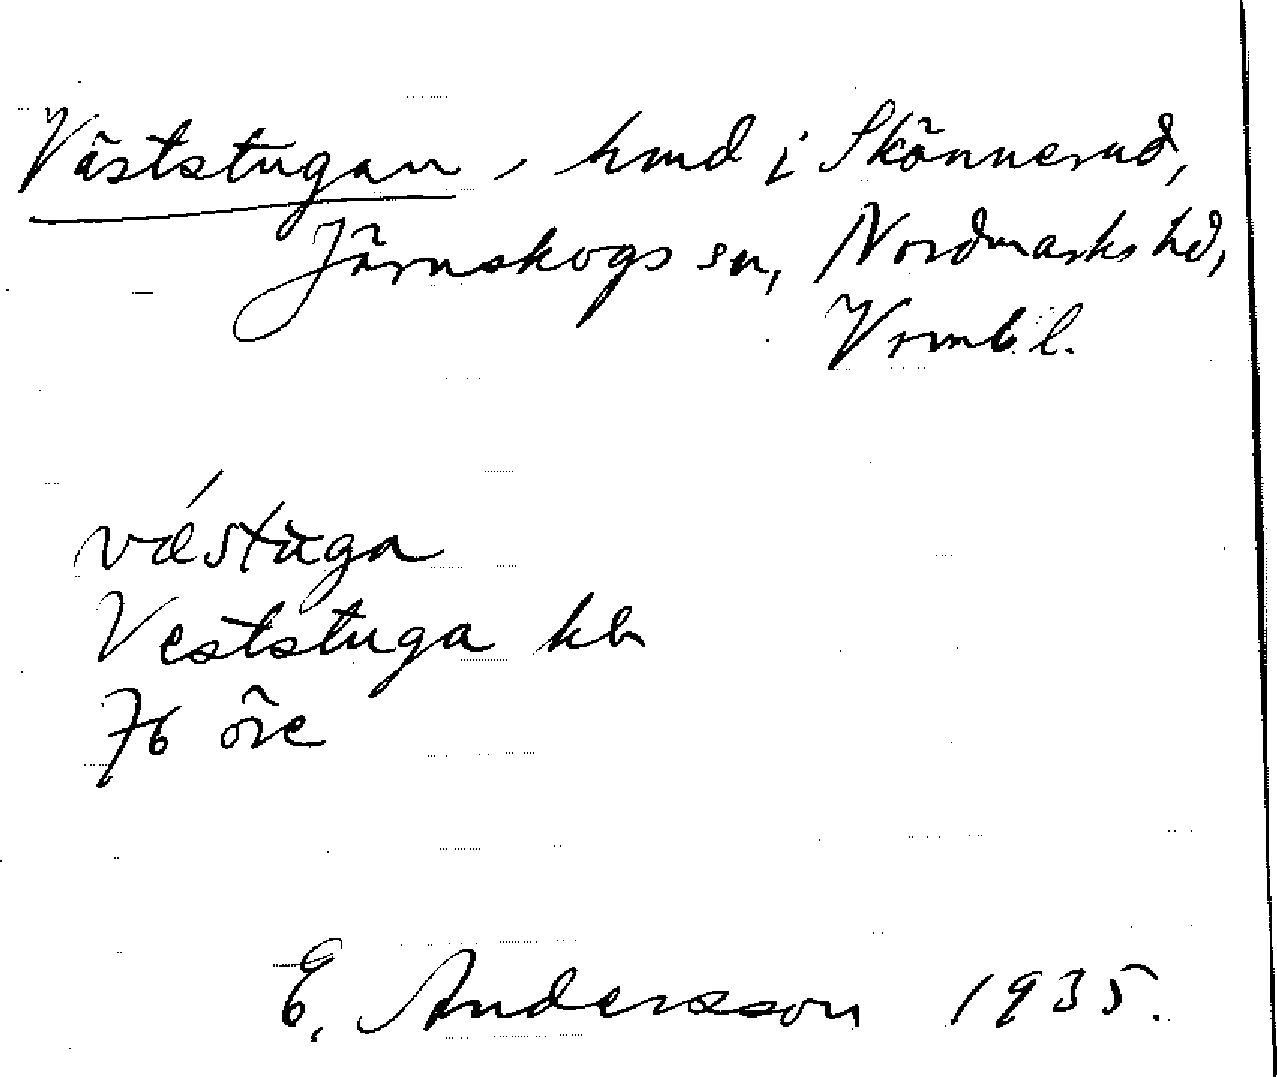 Väststugan, hmd i Skönnerud,
Järnskogs sn, Nordmarks hd,
Vrml. l.
vǽstuga
Veststuga kb
76 öre
E. Andersson 1935.